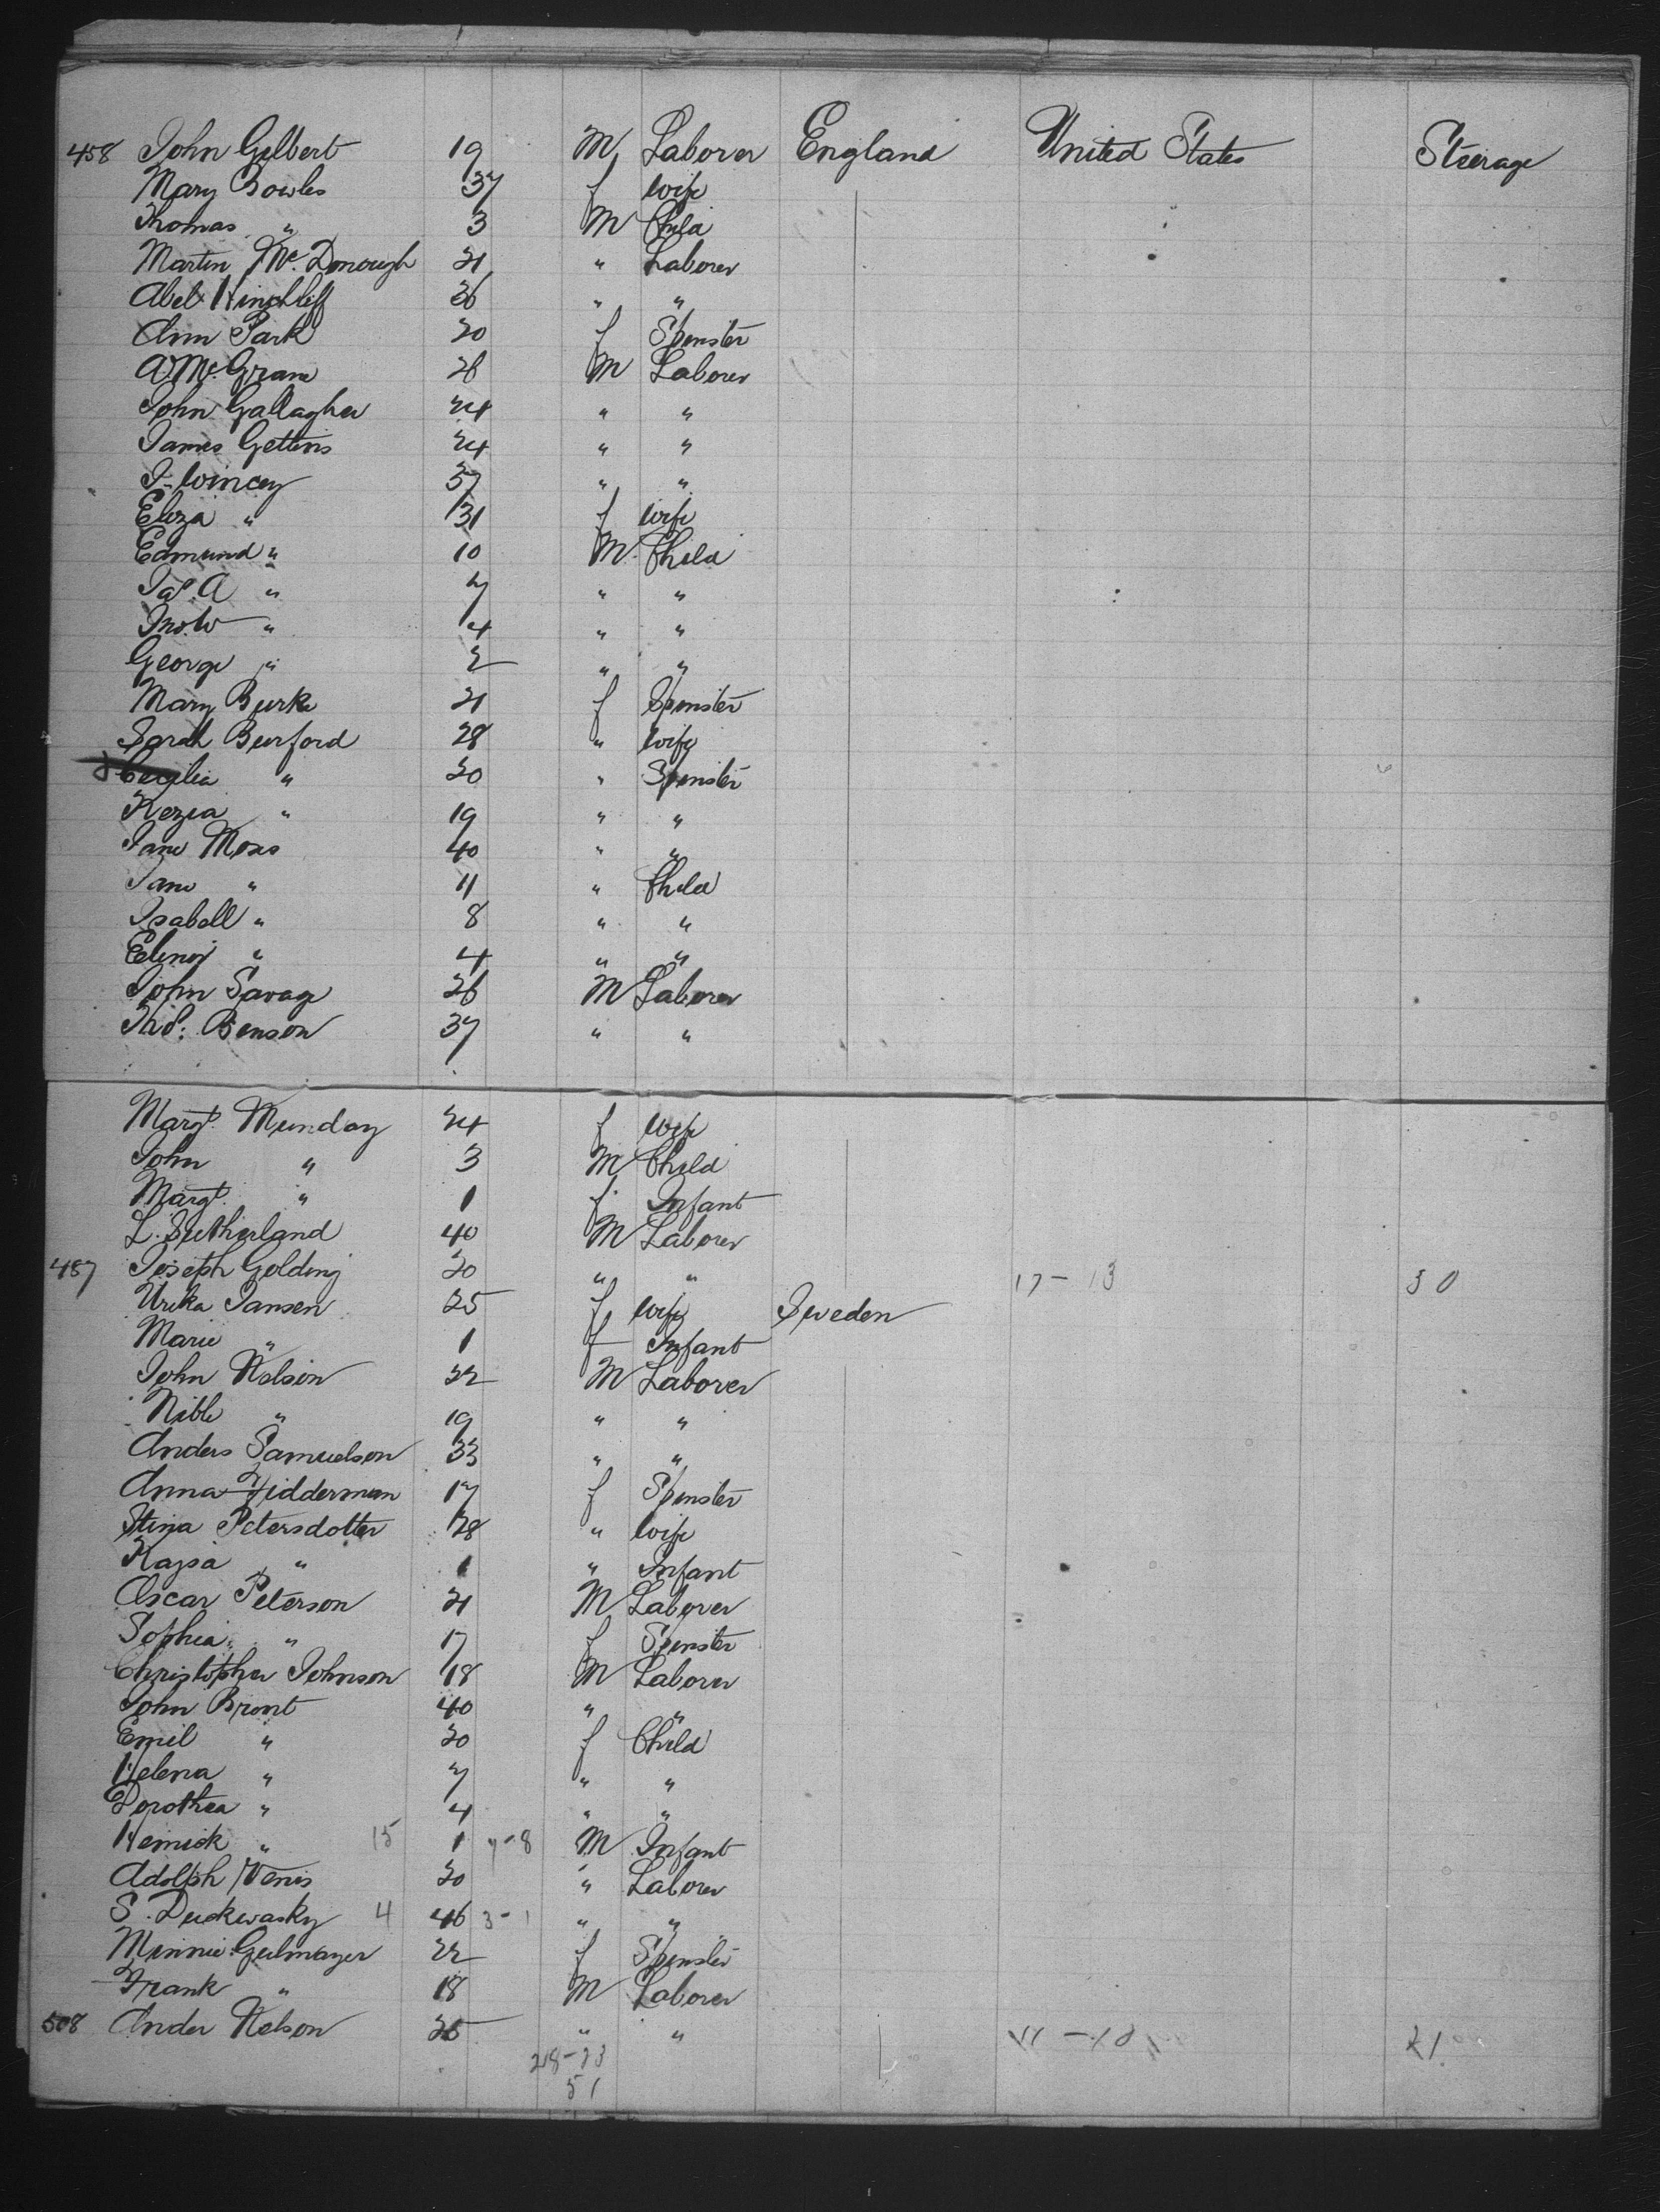 458 John Gilbert 19 M Laborer England United States Steerage
Mary Bowles 37 f Wife
Thomas " 3 M Child
Martin Mc Donough 21 " Laborer
Abel Hinchliff 36 " "
Ann Park 20 f Spinster
A McGrane 26 M Laborer
John Gallagher 24 " "
James Gettins 24 " "
J. Wincey 37 " "
Eliza " 31 f Wife
Edmund " 10 M Child
Jas. A " 7 " "
Jno. W " 4 " "
George " 2 " "
Mary Burke 21 f Spinster
Sarah Burford 28 " Wife
Cecilia " 20 " Spinster
Kezia " 19 " "
Jane Moses 40 " "
Jane " 11 " Child
Isabell " 8 " "
Elinor " 4 " "
John Savage 26 M Laborer
Thos. Benson 37 " "
Margt. Munday 24 f Wife
John " 3 M Child
Margt. " 1 f Infant
L. Sutherland 40 M Laborer
487 Joseph Golding 20 " " 17-13 30
Urika Jansen 25 f Wife Sweden
Marie " 1 f Infant
John Nelson 22 M Laborer
Nible " 19 " "
Anders Samuelson 33 " "
Anna Fidderman 17 f Spinster
Stina Petersdotter 28 " Wife
Kajsa " 1 " Infant
Oscar Peterson 21 M Laborer
Sophia " 17 f Spinster
Christopher Johnson 18 M Laborer
John Bront 40 " "
Emil " 20 f Child
Helena " 7 " "
Dorothea " 4 " "
" 15 1 7-8 M Infant
Adolph Venis 20 " Laborer
S. Duckwasky 4 46 3-1 " "
Minnie Geilmayer 22 f Spinster
Frank " 18 M Laborer
508 Ander Nelson 25 " " 11-10 21
218-23
51